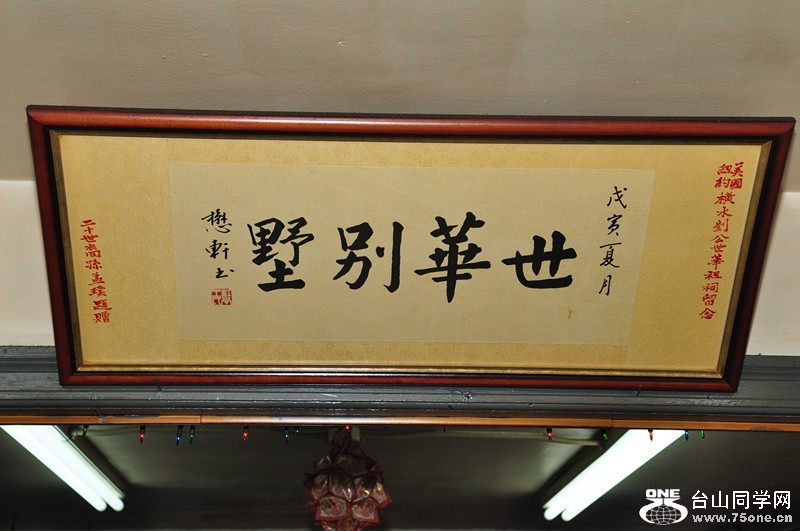 美國
紐約橫水劉公世華祖祠留念
戊寅夏月
世華別墅
懋軒书
二十世裔孫孟璞題贈
ONE
台山同学网
www.75one.cn